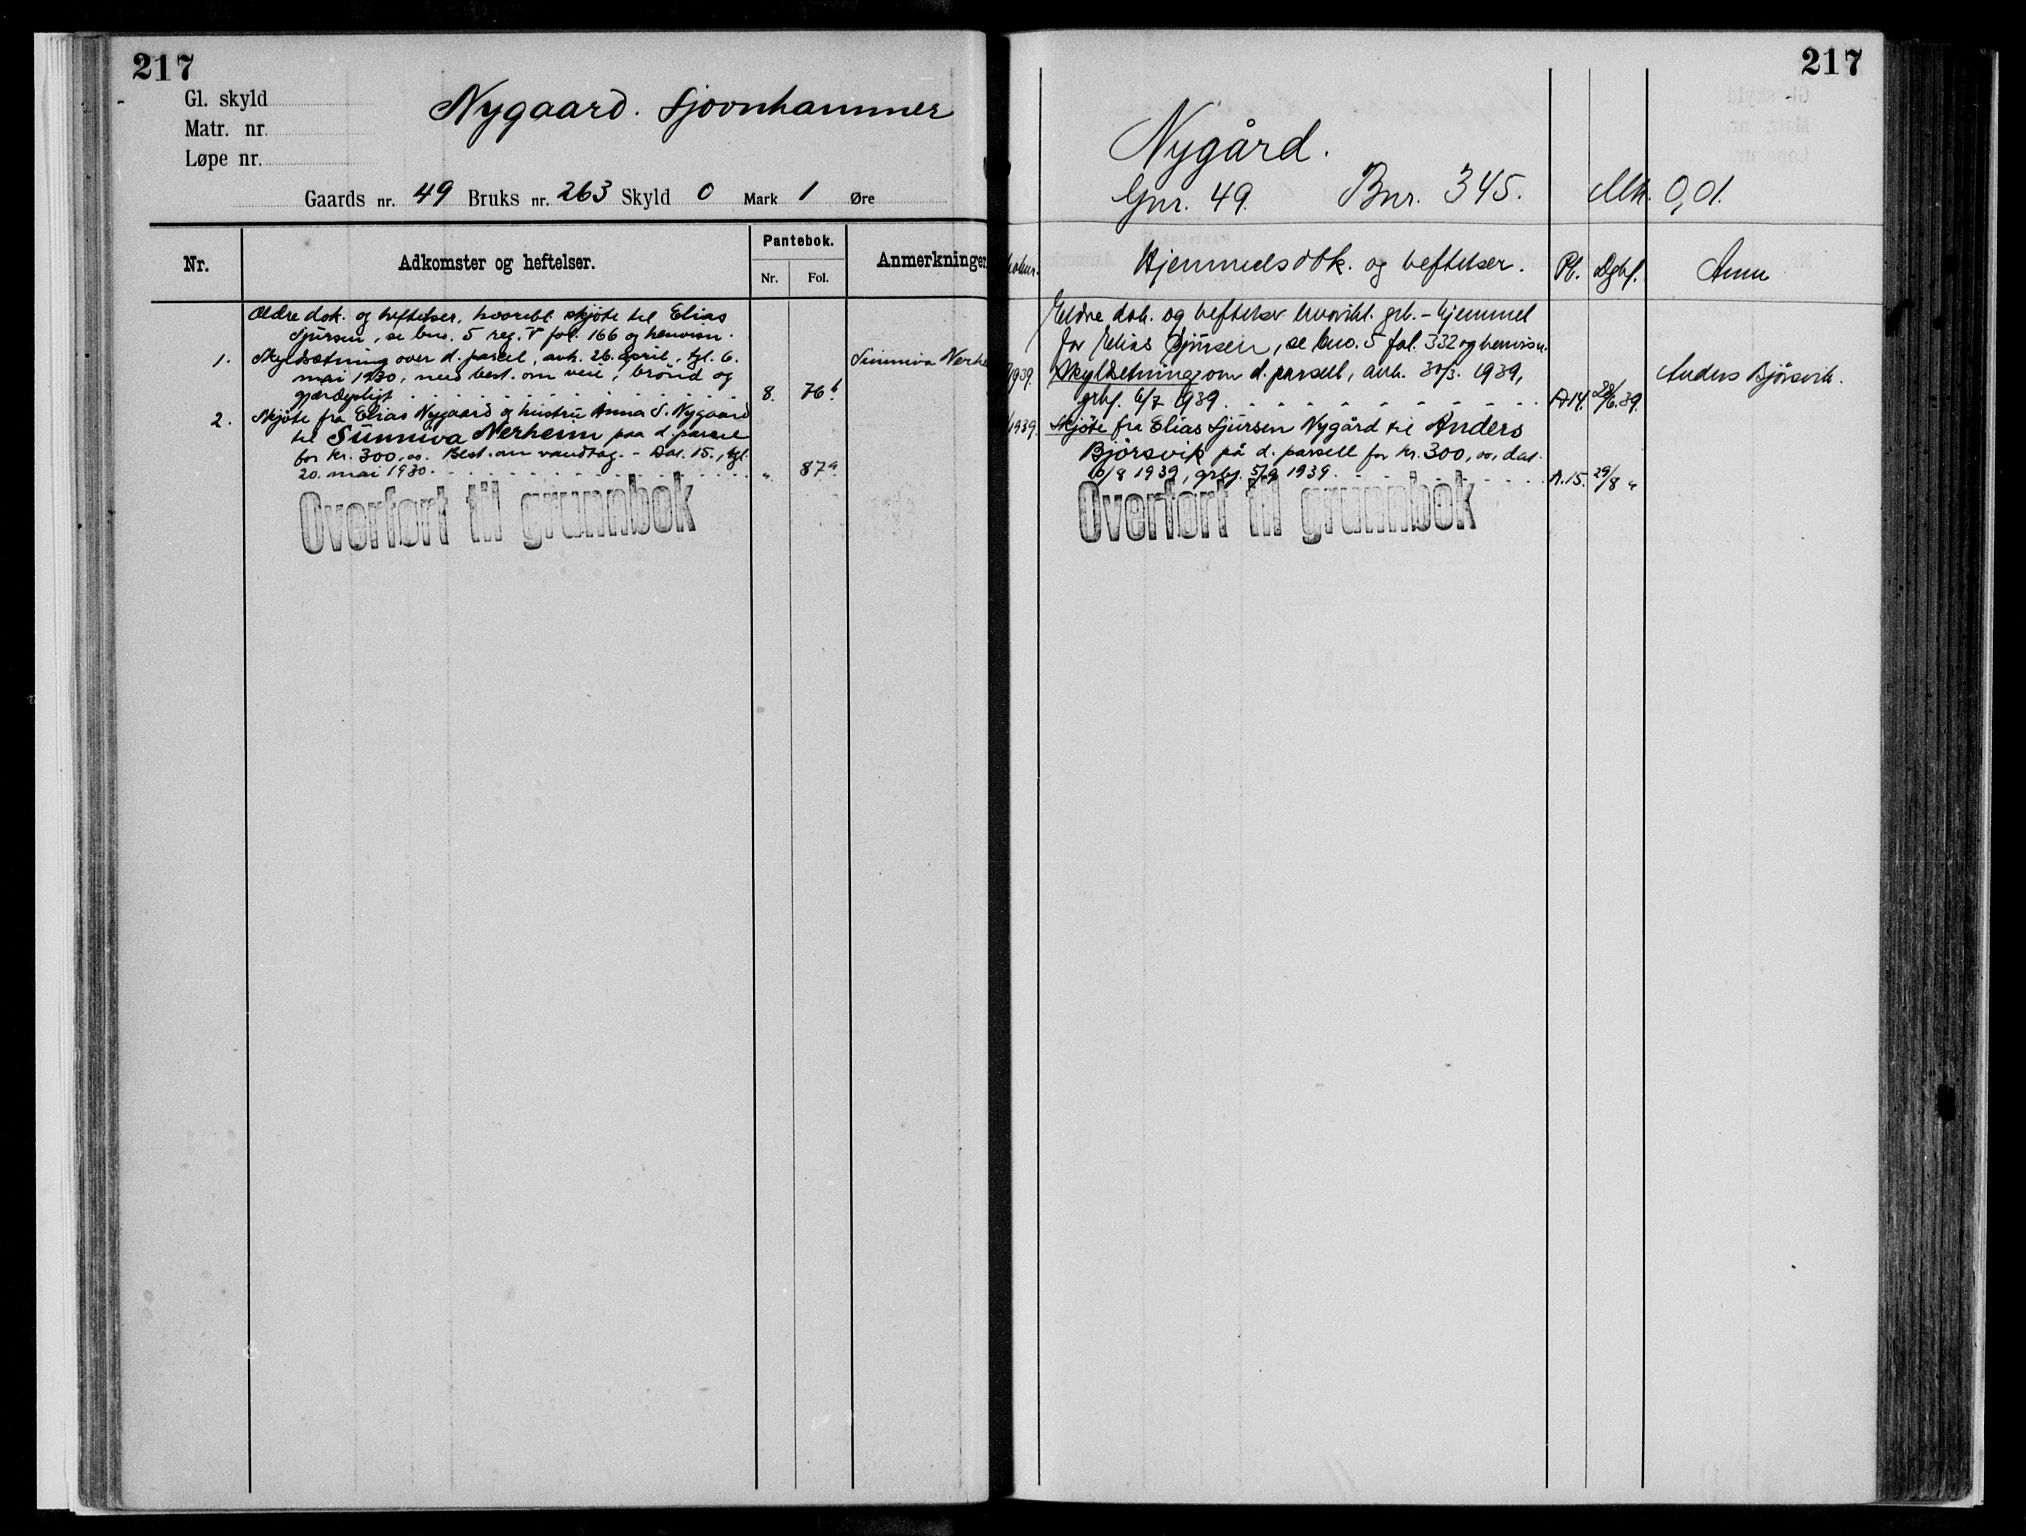 217
Gl. skyld
Matr. nr.
Løpe nr.
Nygaard. Sjovnhammer
Gaards nr. 49 Bruks nr. 263 Skyld 0 Mark 1 Øre
Nr.
Adkomster og heftelser.
Pantebok.
Nr.
Fol.
Anmerkninger
Ældre dok. og heftelser, hvoribl. skjøte til Elias
Sjursen, se bno. 5 reg. V fol. 166 og henvisn.
1. Skyldsætning over d. parcel, avh. 26. april, tgl. 6.
mai 1930, med best. om veie, brønd og
gjærdepligt 8. 76b
Sunniva Nerhe
2. Skjøte fra Elias Nygaard og hustru Anna S. Nygaard
til Sunniva Nerheim paa d. parcel
for kr. 300,00. Best. om vandtag. - Dat. 15., tgl.
20. mai 1930. " 87a
Overført til grunnbok
217
Nygård.
Gnr. 49. Bnr. 345. Mk. 0,01.
Hjemmelsdok. og heftelser.
Pb.
Dgbf.
Anm
Eldre dok. og heftelser hvoribl. grb. - hjemmel
for Elias Sjursen, se bno. 5 fol. 332 og henvisn.
1939. Skyldsetning om d. parsell, avh. 30/3. 1939,
grbf. 6/7 1939. A 14. 28/6.39.
Anders Bjørsvik.
1939. Skjøte fra Elias Sjursen Nygård til Anders
Bjørsvik på d. parsell for kr. 300,00, dat.
16/8 1939, grbf. 5/9 1939. A.15. 29/8 "
Overført til grunnbok